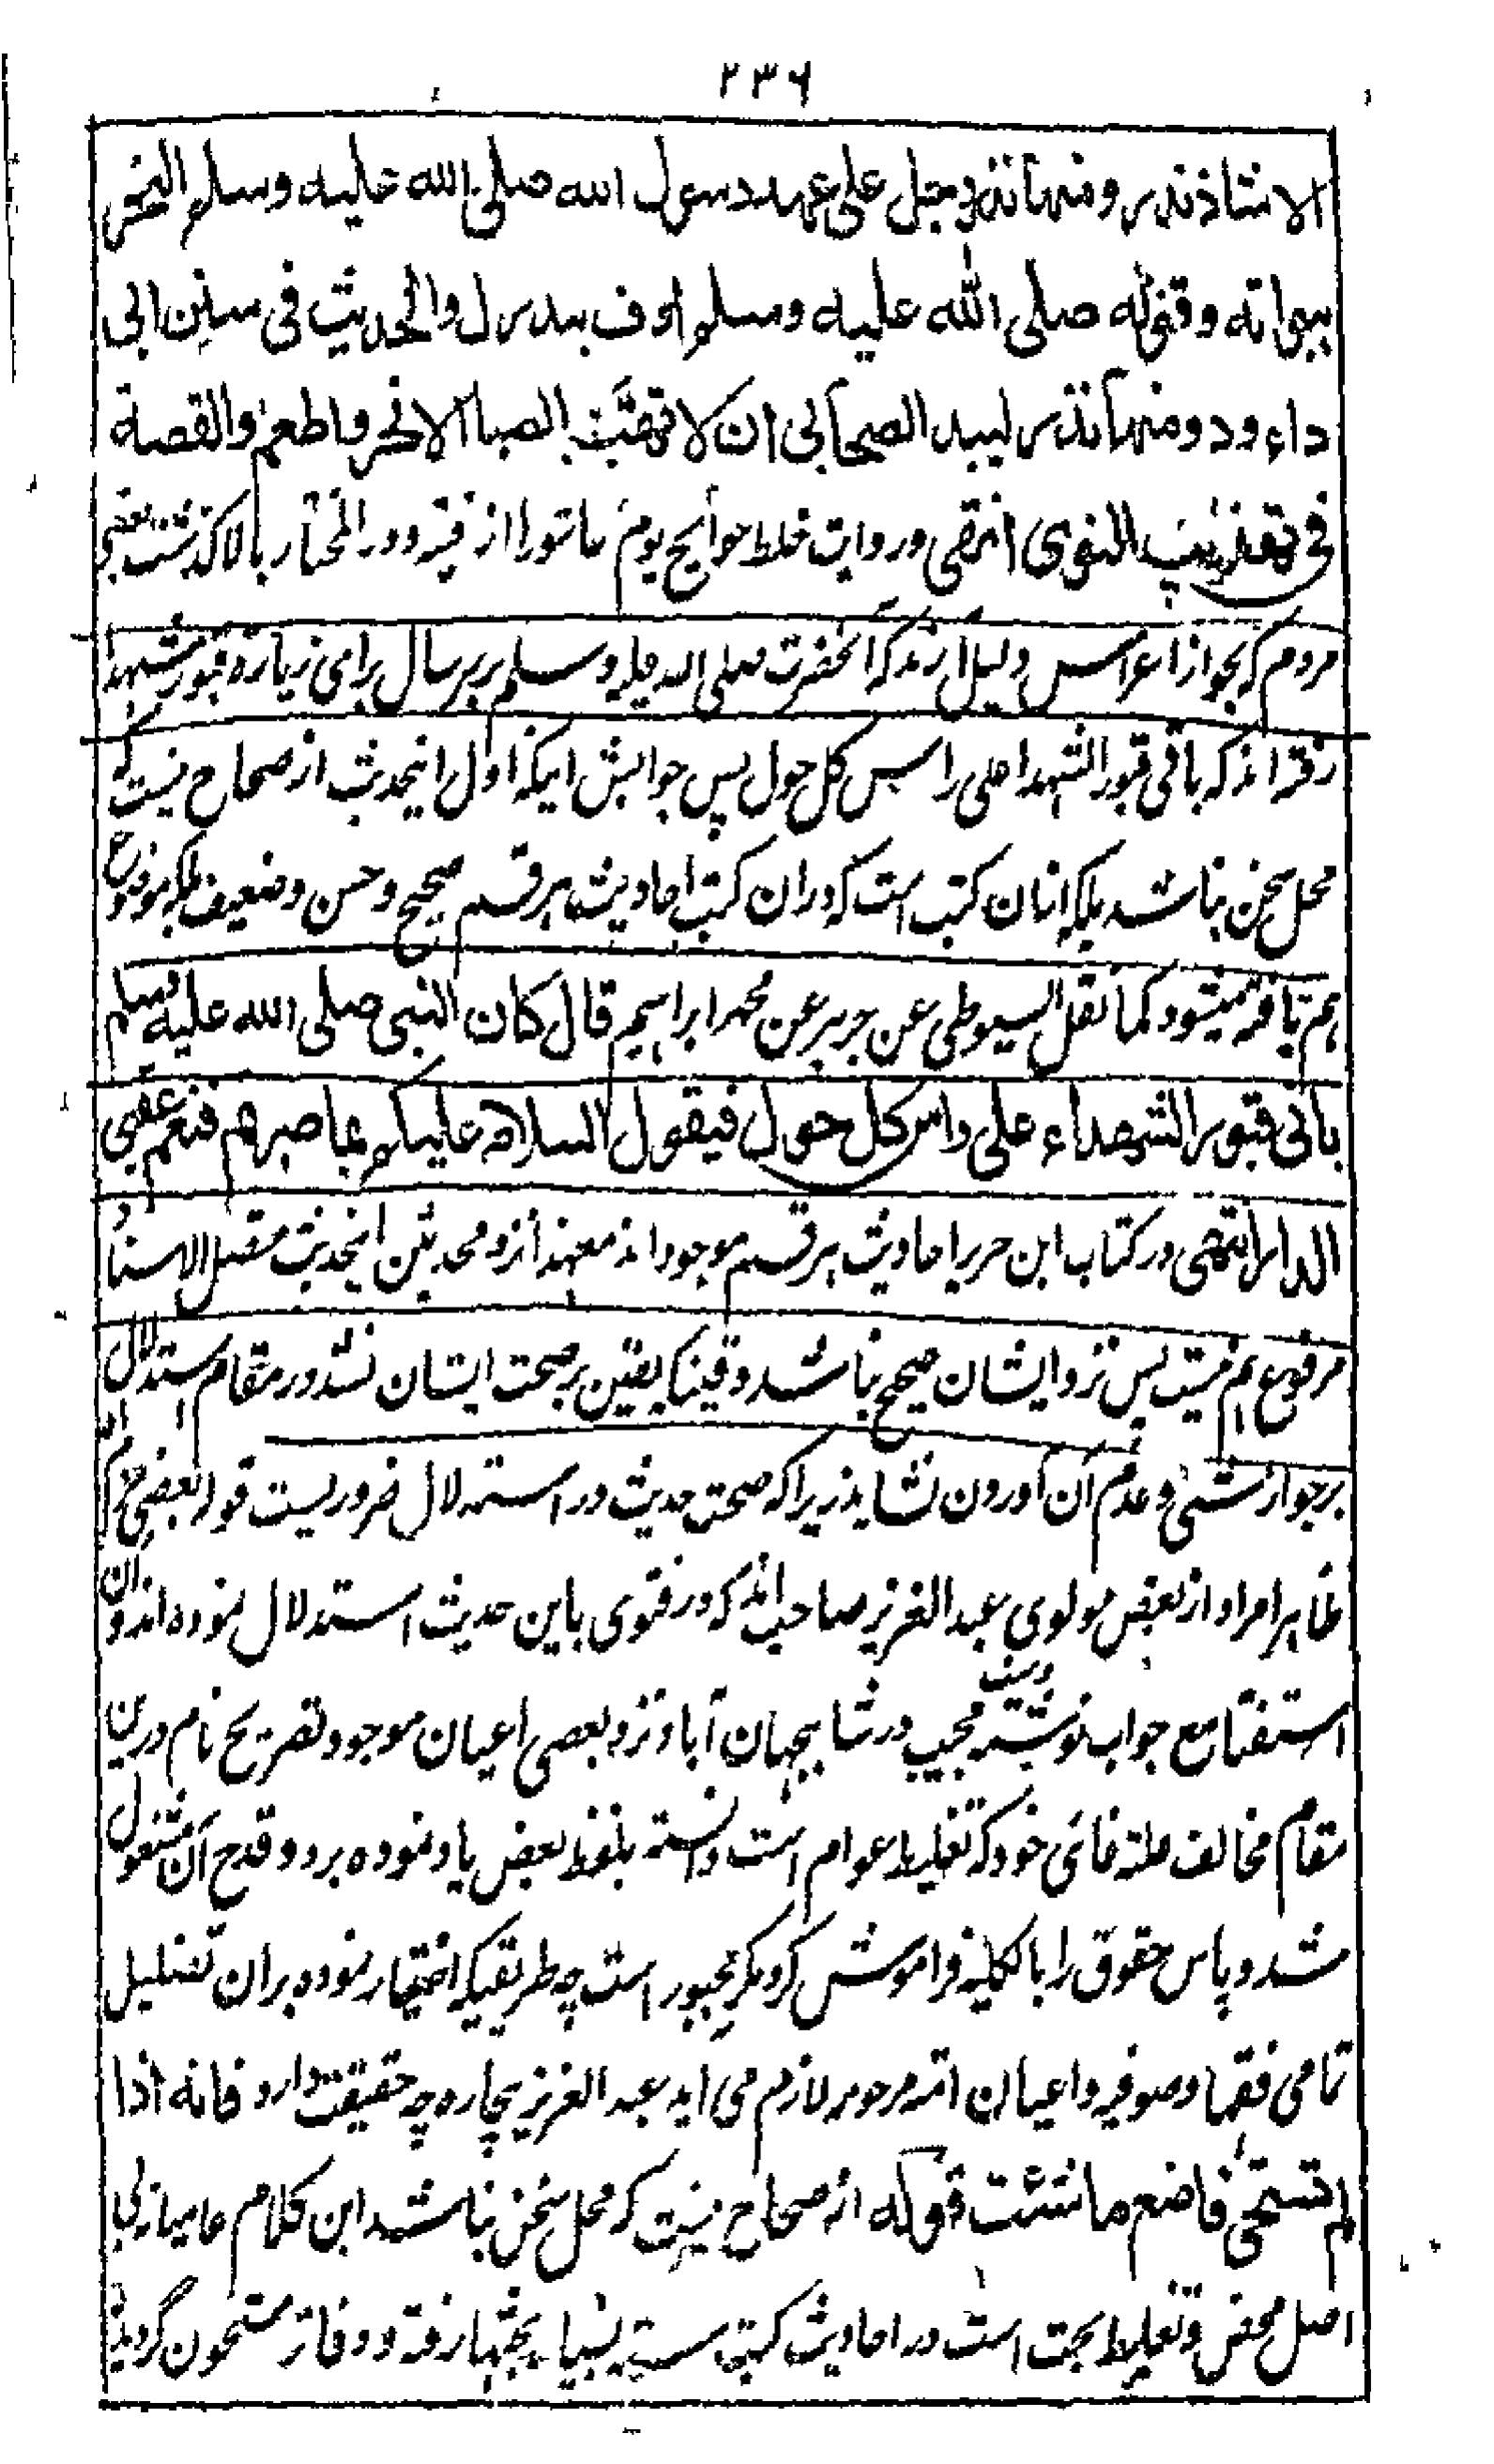 ۲۳۶
الا نشاذ نذر ومنها نذر رجل على عهد رسول الله صلى الله عليه وسلم النحر
ببوانه وقوله صلى الله عليه وسلم اوف بنذرك والحديث فى سنن ابى
داءود ومنها نذر لبيد الصحابى ان لا تهب الصبا الا نحر واطعم والقصة
فى تهذيب النووى انتهى و روایت خلط حوایج یوم عاشورا از قنیه و در المختار بالا گذشت بعضی
مردم که بجواز اعراس دلیل ارند که آنحضرت صلی الله علیه وسلم بر هر سال برای زیارة قبور شهدا
رفته اند که یاتی قبور الشهدا علی راس کل حول پس جوابش اینکه اول اینحدیث از صحاح نیست که
محل سخن نباشد بلکه از ان کتب است که در ان کتب احادیث هر قسم صحیح و حسن و ضعیف بلکه موضوع
هم یافته میشود كما نقل السيوطى عن جرير عن محمد ابراهيم قال كان النبى صلى الله عليه وسلم
ياتى قبور الشهداء على راس كل حول فيقول السلام عليكم بما صبرتم فنعم عقبى
الدار انتهى در کتاب ابن جریر احادیث هر قسم موجود اند معهذا نزد محدثین اینحدیث متصل الاسناد
مرفوع هم نیست پس نزد ایشان صحیح نباشد وقتیکه یقین بر صحت ایشان نشد در مقام استدلال
بر جواز شی و عدم آن آوردن نشاید زیرا که صحت حدیث در استدلال ضروریست قوله بعضی مردم الخ
ظاهرا مراد از بعض مولوی عبد العزیز صاحب اند که در فتوی باین حدیث استدلال نموده اند و ان
استفتا مع جواب نوشته دستخط مجیب در شاهجهان آباد نزد بعضی اعیان موجود تصریح نام درین
مقام مخالف علة غائی خود که تغلیط عوام است دانسته بلفظ بعض یاد نموده برد و قدح آن مشغول
شد و پاس حقوق را بالکلیه فراموش کرد مگر مجبور است چه طریقیکه اختیار نموده بران تضلیل
تمامی فقها و صوفیه و اعیان امة مرحومه لازم می اید عبد العزیز بیچاره چه حقیقت دارد فانه اذا
لم تستحى فاصنع ما شئت قوله از صحاح نیست که محل سخن نباشد این کلام عامیانه بی
اصل محض و تغلیط بحت است در احادیث کتب سته بسیار بحثها رفته و دفاتر مشحون گردیده